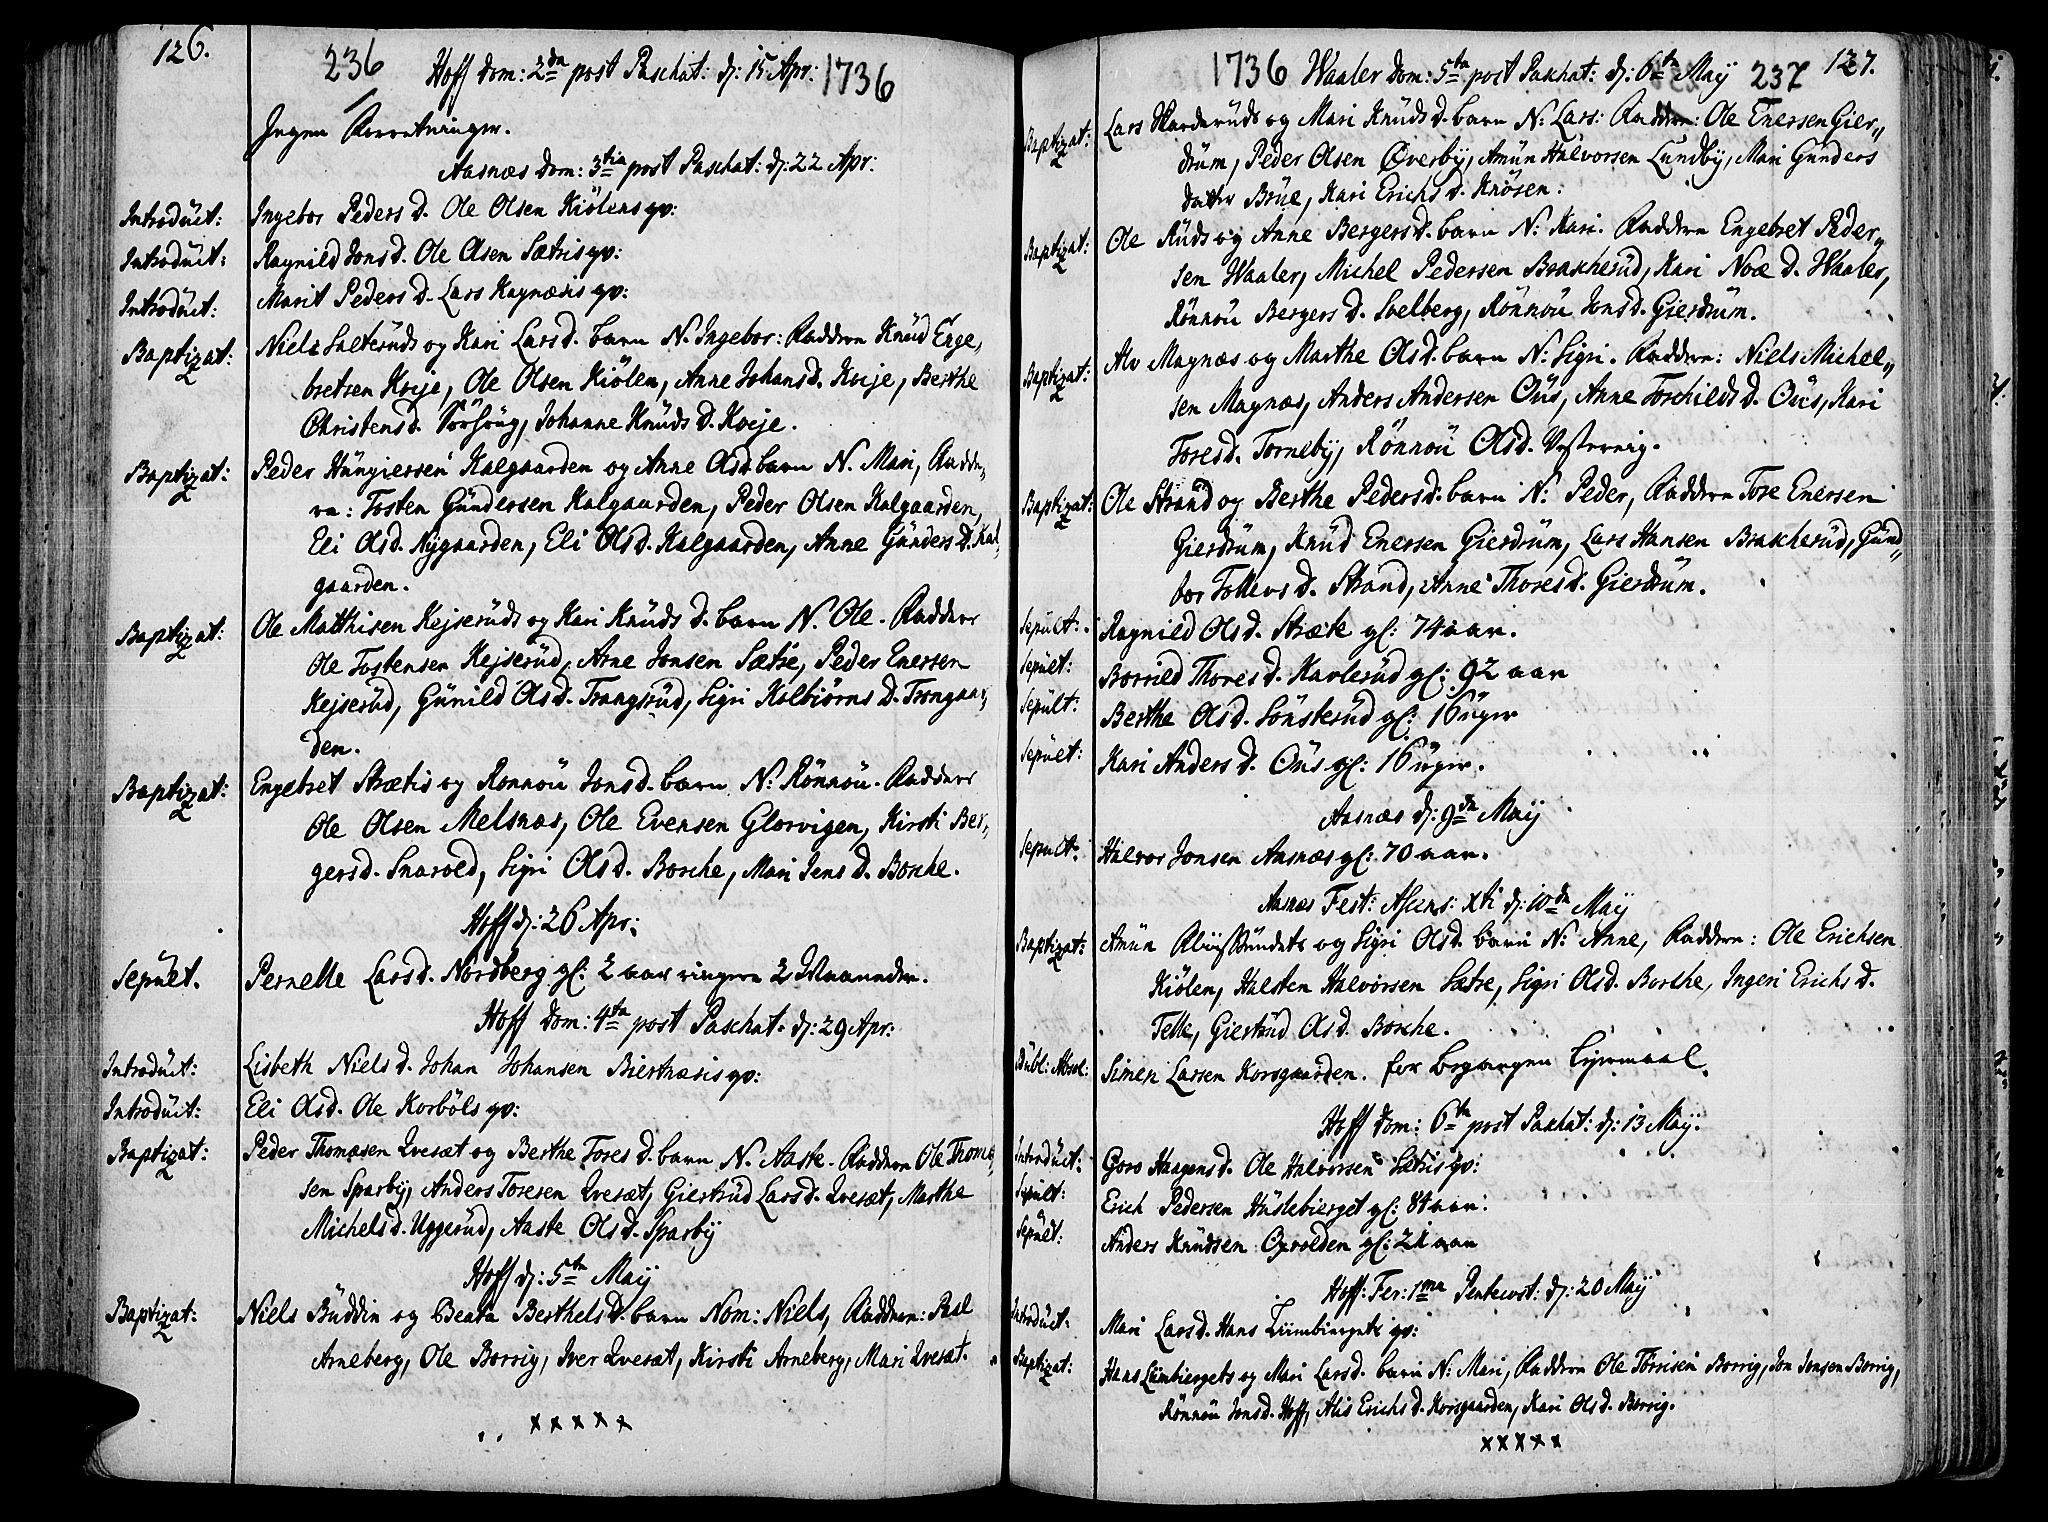 126.
236 Hoff Dom: 2dn post Paschat: dj: 15 Apr: 1736
Ingen Forretninger.
Aasnæs Dom: 3tia post Paschat: dj: 22 Apr:
Introduct: Ingebor Peders d. Ole Olsen Kiölens qv:
Introduct: Ragnild Jons d. Ole Olsen Sætris qv:
Introduct: Marit Peders d. Lars Kagnæsis qv:
Baptizat: Niels Salteruds og Kari Lars d. barn N. Ingebor: Faddern Knud Enge,
bretsen Kveje, Ole Olsen Kiölen, Anne Johans d. Kveje, Berthe
Christens d. Sörhoug, Johanne Knuds d. Kveje.
Baptizat: Peder Hungiersen Kalgaarden og Anne Ols d. barn N. Mari, Fadde,
rn: Tosten Gundersen Kalgaarden, Peder Olsen Kalgaarden,
Eli Ols d. Nygaarden, Eli Ols d. Kalgaarden, Anne Gunders d. Kal,
gaarden.
Baptizat: Ole Matthisen Kejseruds og Kari Knuds d. barn N. Ole. Fadderne
Ole Tostensen Kejserud, Arne Jonsen Sætre, Peder Enersen
Kejserud, Gunild Ols d. Trangsrud, Sigri Kolbiörns d. Trongaar,
den.
Baptizat: Engebret Strætis og Ronnou Jons d. barn N: Rönnou. Fadderne
Ole Olsen Melsnæs, Ole Evensen Glorvigen, Kirsti Ber,
gers d. Snarved, Sigri Ols d. Borche, Mari Jens d. Borche.
Hoff dj: 26 Apr:
Sepult. Pernelle Lars d. Nordberg gl: 2 aar ringere 2 Maaneder.
Hoff Dom: 4ta post Paschat: dj: 29 Apr:
Introduct: Lisbeth Niels d. Johan Johansen Biertnæsis qv:
Introduct: Eli Ols d. Ole Korböls qv:
Baptizat: Peder Thomæsen Qvesæt og Berthe Tores d. barn N. Aaste. Faddern Ole Thomæ,
sen Sparby, Anders Toresen Qvesæt, Giertrud Lars d. Qvesæt, Marthe
Michels d. Uggerud, Aaste Ols d. Sparby
Hoff dj: 5tn May
Baptizat: Niels Buddin og Beata Berthels d. barn Nom: Niels, Faddern: Paal
Arneberg, Ole Borrig, Iver Qvesæt, Kirsti Arneberg, Mari Qvesæt.
x x x x x
1736 Waaler Dom: 5tn post Paschat: dj: 6tn May 237 127.
Baptizat: Lars Harderuds og Mari Knuds d. barn N: Lars: Faddern: Ole Enersen Gier,,
drum, Peder Olsen Överby, Amun Halvorsen Lundby, Mari Gunders
datter Brue, Kari Erichs d. Knösen:
Baptizat: Ole Ruds og Anne Bergers d. barn N: Kari. Faddern Engebret Peder,,
sen Waaler, Michel Pedersen Brascherud, Kari Noæ d. Waaler,
Rönnou Bergers d. Soelberg, Rönnou Jons d. Gierdrum.
Baptizat: Alv Magnæs og Marthe Ols d. barn N: Sigri. Faddern: Niels Michel,,
sen Magnæs, Anders Andersen Ous, Anne Torchilds d. Ous, Kari
Tores d. Torneby, Rönnou Ols d. Vestervig.
Baptizat: Ole Strand og Berthe Peders d. barn N: Peder, Faddern Tore Enersen
Gierdrum, Knud Enersen Gierdrum, Lars Hansen Brascherud, Gund,,
bor Tollevs d. Strand, Anne Thores d. Gierdrum.
Sepult: Ragnild Ols d. Stræte gl: 74 aar.
Sepult: Borrild Thores d. Kavlerud gl: 92 aar
Sepult: Berthe Ols d. Sönsterud gl: 16 uger
Sepult: Kari Anders d. Ous gl: 16 uger.
Aasnæs dj: 9dn May
Sepult: Halvor Jonsen Aasnæs gl: 70 aar.
Aasnæs Fest: Ascens: Xti dj: 10dn May
Baptizat: Amun og Sigri Ols d. barn N: Anne, Faddern: Ole Erichsen
Kiölen, Halsten Halvorsen Sætre, Sigri Ols d. Borche, Ingeri Erichs d.
Telle, Giertrud Ols d. Borche.
Publ: Absol: Simen Larsen Korsgaarden. for begangen Lejermaal.
Hoff Dom: 6tn post Paschat: dj: 13 May.
Introduct: Goro Haagens d. Ole Halvorsen Sætris qv:
Sepult: Erich Pedersen Huslebierget gl: 84 aar:
Sepult: Anders Knudsen Opvolden gl: 21 aar
Hoff: Fer: 1ma Pentecost: dj: 20 May
Introduct: Mari Lars d. Hans Lumbiergets qv:
Baptizat: Hans Lumbiergets og Mari Lars d. barn N: Mari, Faddern Ole Torrisen Borrig, Jon Jonsen Borrig,
Rönnou Jons d. Hoff, Alis Erichs d. Korsgaarden, Kari Ols d. Borrig.
x x x x x